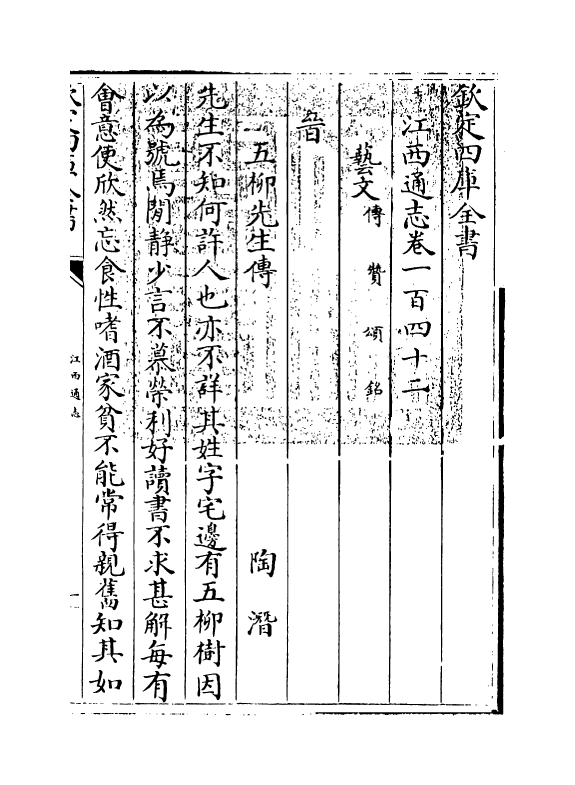 欽定四庫全書
江西通志卷一百四十二
藝文傳 贊 頌 銘
晉
五柳先生傳 陶潛
先生不知何許人也亦不詳其姓字宅邊有五柳樹因
以為號焉閒静少言不慕榮利好讀書不求甚解每有
會意便欣然忘食性嗜酒家貧不能常得親舊知其如
江西通志
一